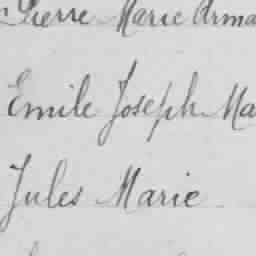 Pierre Marie Arma
Emile Joseph Ma
Jules Marie